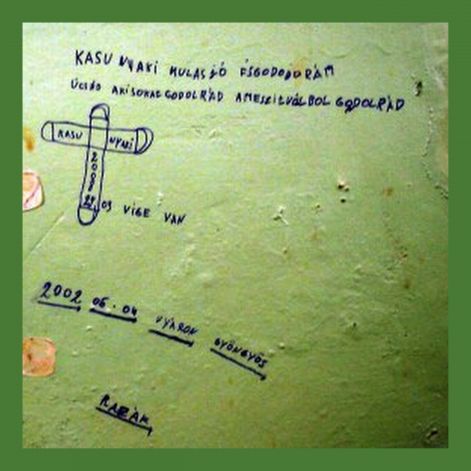 KASU NYAKI MULASJÓ ÉSGODODORÁM
ÚCSÓD AKISOKAT GODOLRÁD AMESZITVÁLBOL GODOLRÁD
KASU NYAKI
2008
29. 09 VIGE VAN
2002 06.04 NYÁRON GYÖNGYÖS